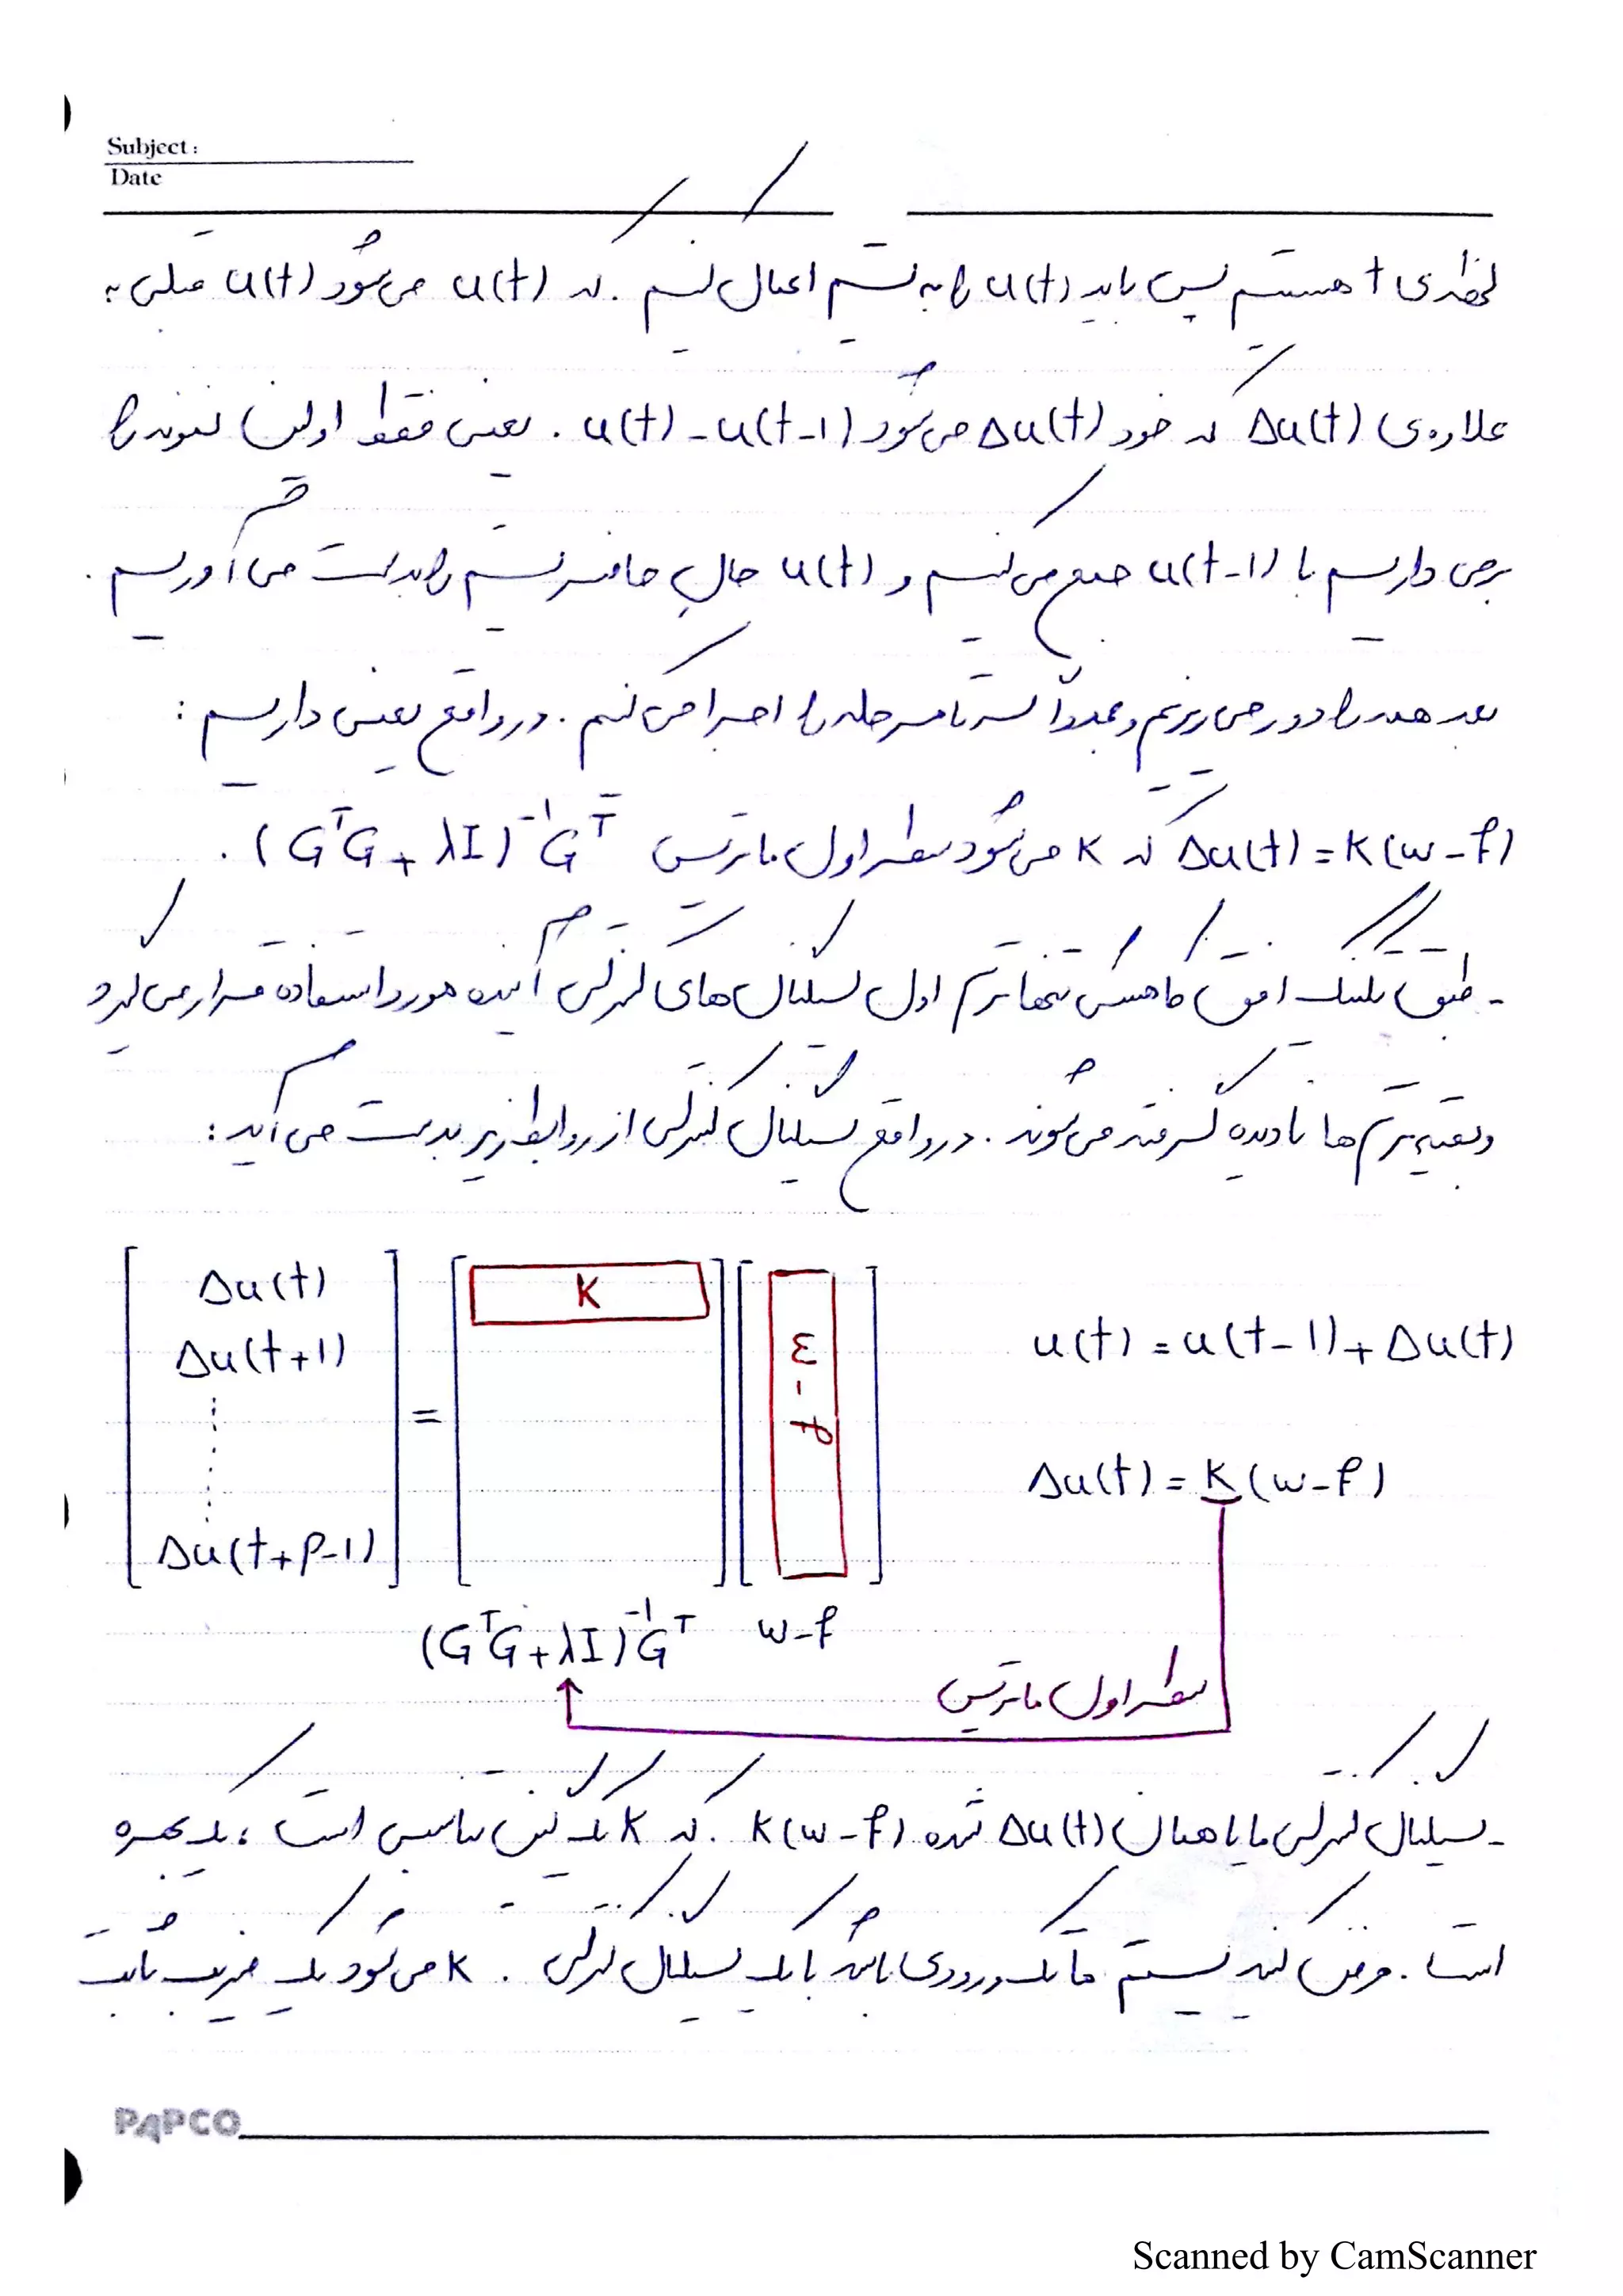 Subject:
Date
لحظه‌ی t هستیم پس باید u(t) را به سیستم اعمال کنیم. که u(t) می‌شود u(t) قبلی به
علاوه‌ی Δu(t) که خود Δu(t) می‌شود u(t) - u(t-1). یعنی فقط اولین نمونه را
برمی داریم با u(t-1) جمع می کنیم و u(t) حال حاضر سیستم را بدست می آوریم.
بعد همه را دور می ریزیم و مجدداً سه تا مرحله را اجرا می کنیم. در واقع یعنی داریم:
Δu(t) = K(w-f) که K می‌شود سطر اول ماتریس (GᵀG + λI)⁻¹Gᵀ.
- طبق تکنیک افق کاهشی تنها ترم اول سیگنال های کنترلی آینده مورد استفاده قرار می گیرد
و بقیه ترم ها نادیده گرفته می شوند. در واقع سیگنال کنترلی از روابط زیر بدست می آید:
Δu(t)
Δu(t+1)
Δu(t+P-1)
=
K
w-f
u(t) = u(t-1) + Δu(t)
Δu(t) = K(w-f)
(GᵀG+λI)⁻¹Gᵀ w-f
سطر اول ماتریس
- سیگنال کنترلی ما یا همان Δu(t) شده K(w-f). که K یک گین تناسبی است، یک بهره
است. فرض کنید سیستم ما تک ورودی باشد با یک سیگنال کنترلی. K می شود یک ضریب ثابت
PAPCO
Scanned by CamScanner